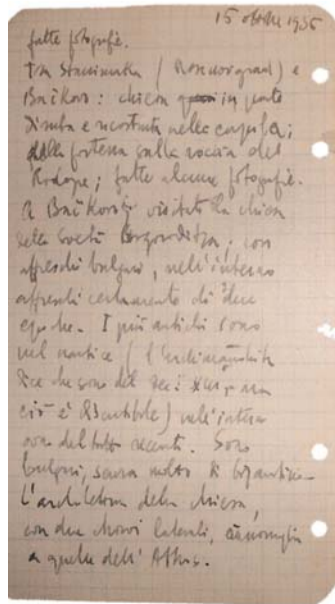 15 ottobre 1936
fatte fotografie.
Tra Stanimaka ( ) e
Bačkovo: chiesa in parte
diruta e ricostruita nella cupola;
della fortezza sulla roccia del
Rodope; fatte alcune fotografie.
A Bačkovo visitata la chiesa
della con
affreschi bulgari, nell'interno
affreschi certamento di due
epoche. I più antichi sono
nel nartice ( l'archimandrita
dice che sono del sec: ma
ciò è discutibile) nell'interno
sono del tutto recenti. Sono
bulgari, senza molto di bizantino
L'architettura della chiesa,
con due nuovi laterali,
a quella dell' Athos.